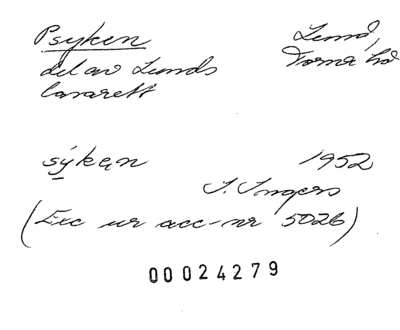 Psyken
del av Lunds
lasarett
Lund,
Torna hd
sýken
1952
I. Ingers
(Exc ur acc-nr 5026)
00024279